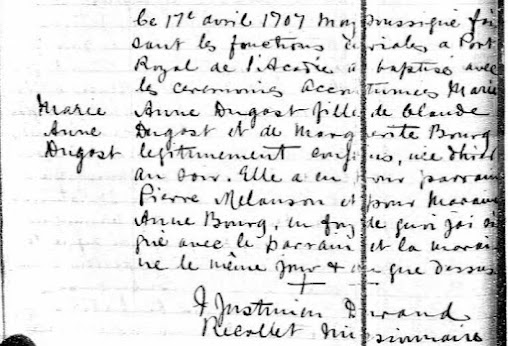 le 17e avril 1707 moy soussigné fai
sant les fonctions curiales a Port
Royal de l'Acadie ai baptisé avec
les ceremonies accoutumées Marie
Marie Anne Dugast fille de Claude
Anne Dugast et de Marguerite Bourg
Dugast legitimement conjous, née d'hier
au soir. Elle a eu pour parrain
Pierre Melanson et pour Maraine
Anne Bourg, en foy de quoi j'ai si
gné avec le parrain et la marai
ne le même jour & an que dessus
f Justinien Durand
Recollet Missionnaire